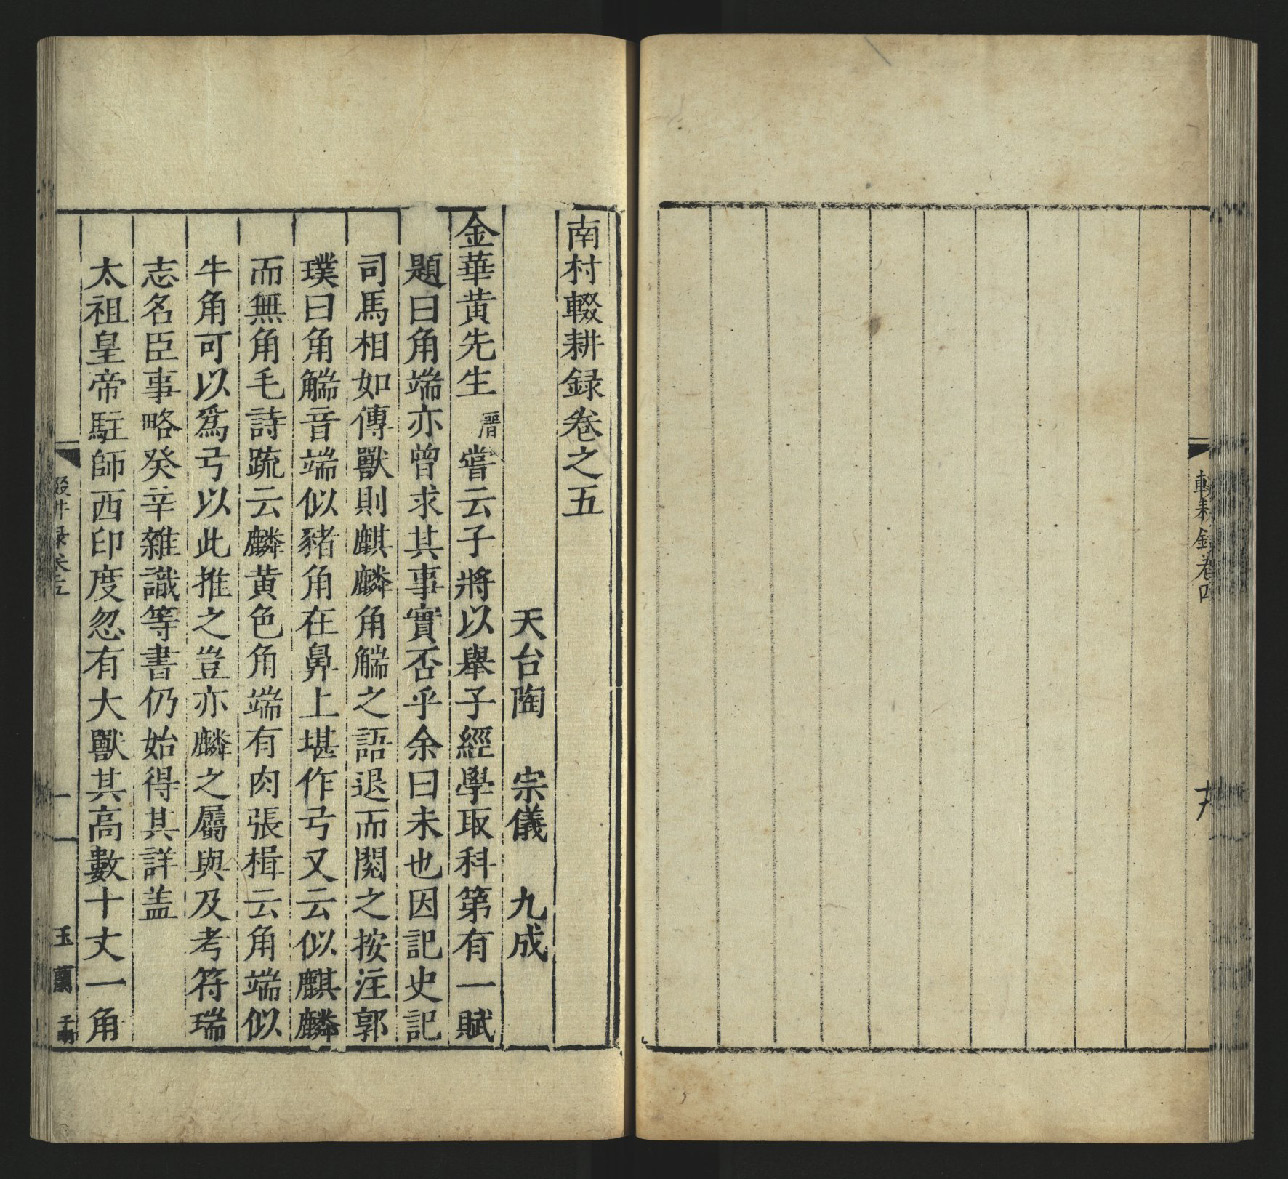 輟耕錄卷四
南村輟耕録卷之五
天台陶 宗儀 九成
金華黄先生溍嘗云子將以舉子經學取科第有一賦
題曰角端亦曾求其事實否乎余曰未也因記史記
司馬相如傳獸則麒麟角觿之語退而閱之按注郭
璞曰角觿音端似豬角在鼻上堪作弓又云似麒麟
而無角毛詩疏云麟黄色角端有肉張楫云角端似
牛角可以爲弓以此推之豈亦麟之屬與及考符瑞
志名臣事略癸辛雜識等書仍始得其詳盖
太祖皇帝駐師西印度忽有大獸其高數十丈一角
玉蘭